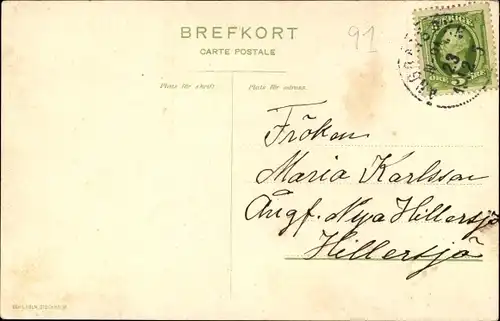 BREFKORT
CARTE POSTALE
91
SVERIGE
ÖRE 5 ÖRE
Plats för skrift.
Plats för adress.
Fröken
Maria Karlsson
Ångf. Nya Hillersjö
Hillersjö